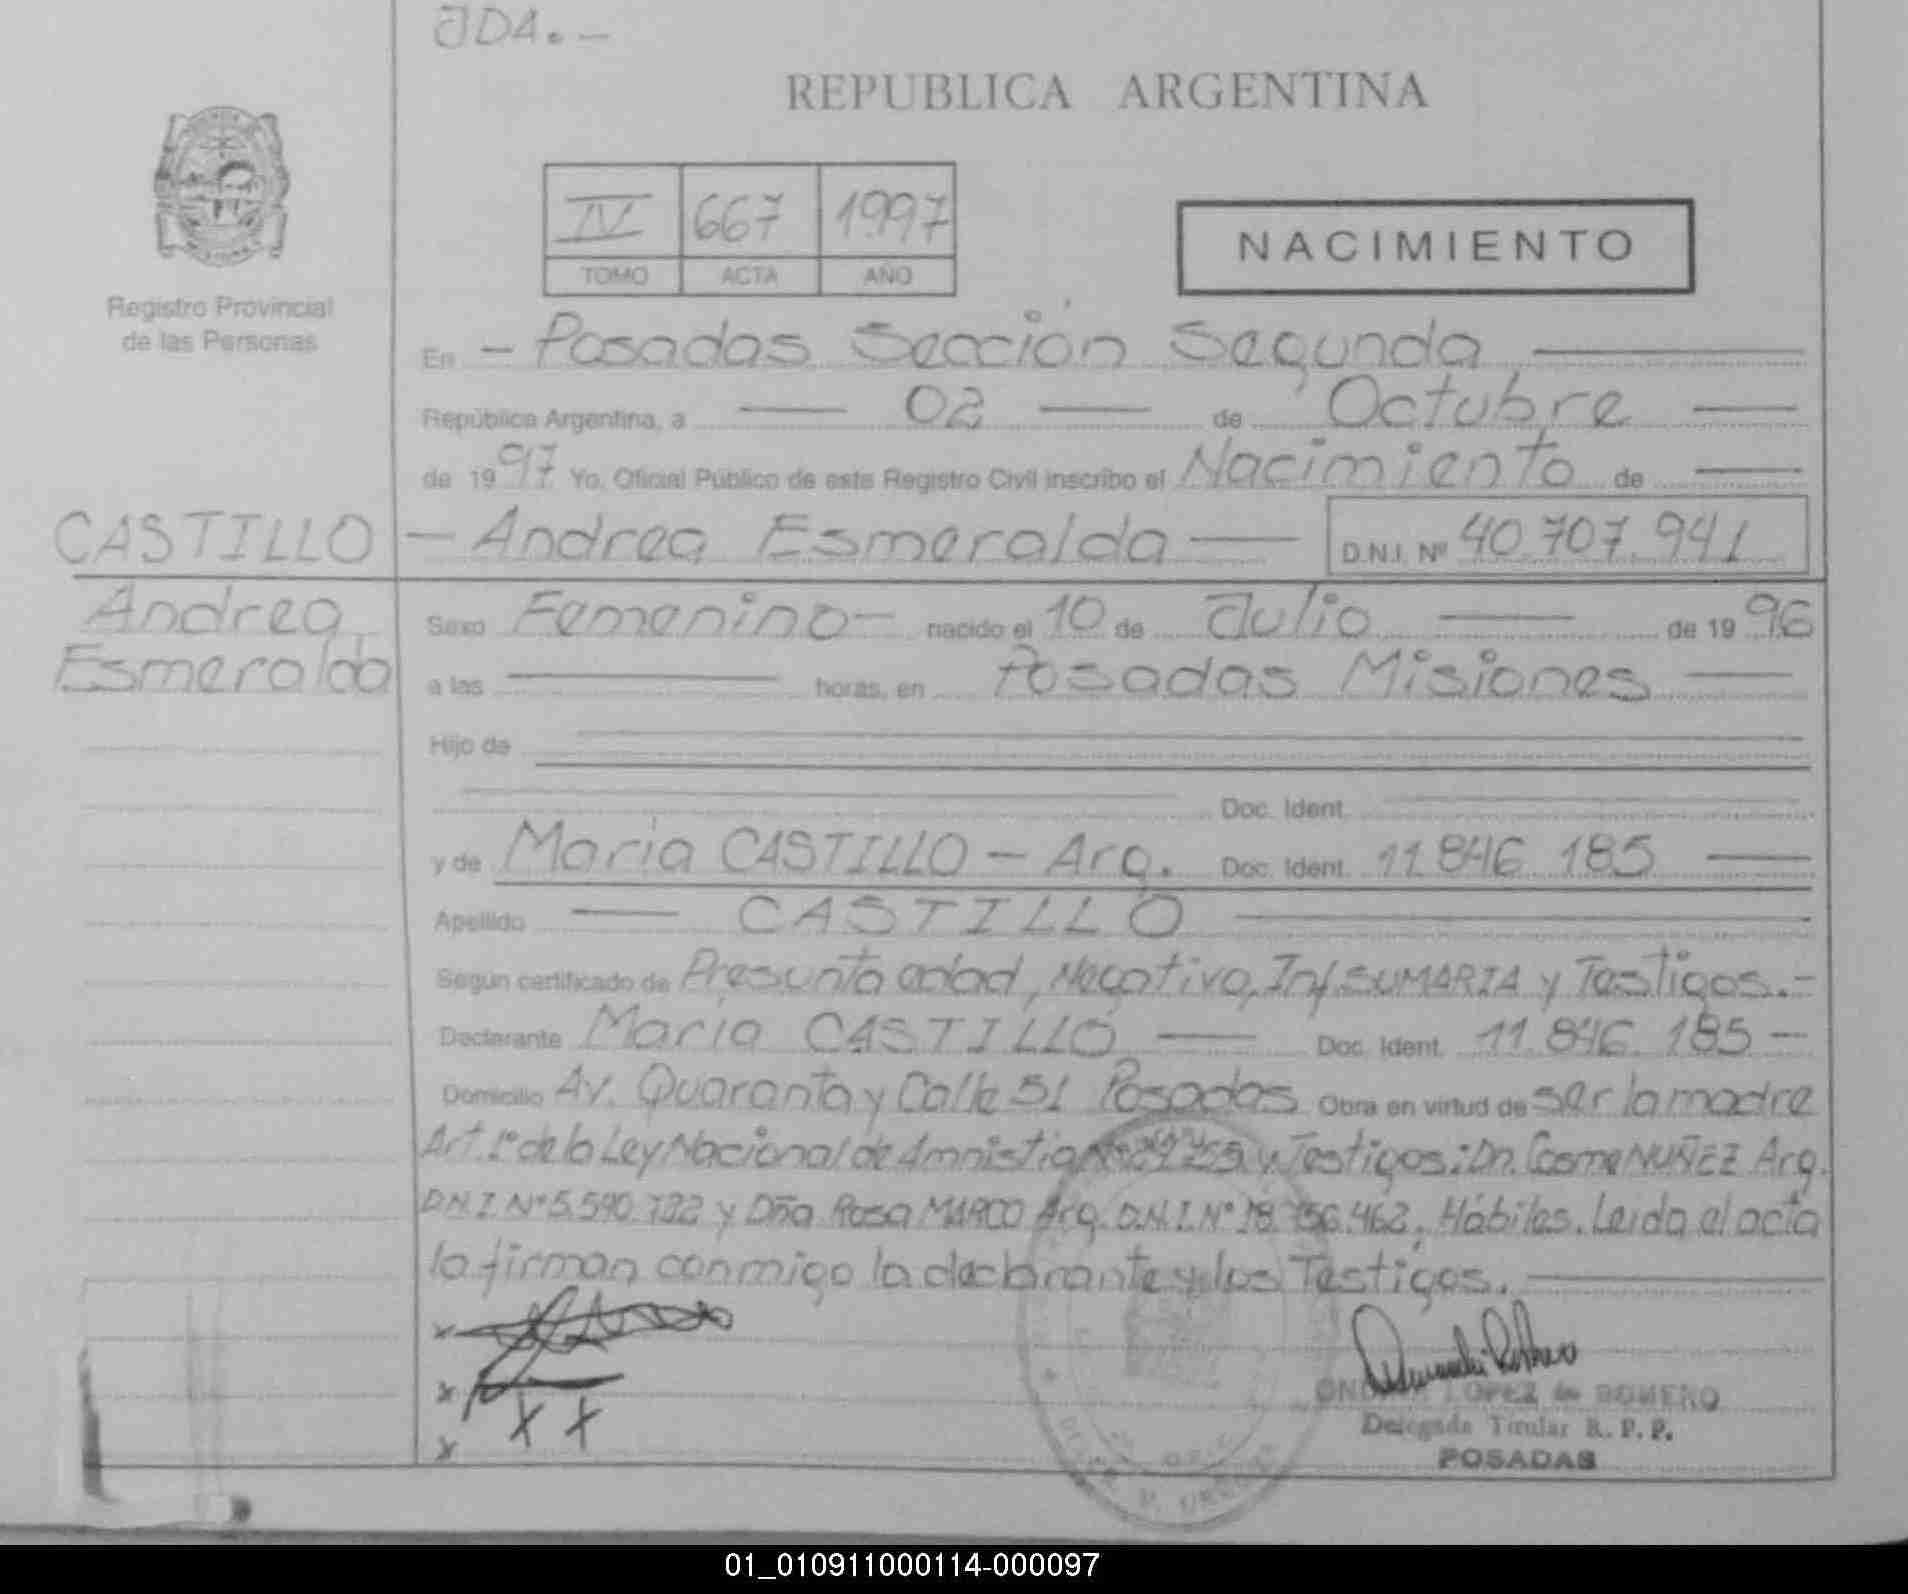 JDA.-
REPUBLICA ARGENTINA
IV 667 1997
TOMO ACTA AÑO
NACIMIENTO
Registro Provincial
de las Personas
En - Posadas Sección Segunda
República Argentina, a 02 de Octubre
de 1997 Yo, Oficial Público de este Registro Civil inscribo el Nacimiento de
CASTILLO - Andrea Esmeralda D.N.I. Nº 40.707.941
Andrea
Esmeralda
Sexo Femenino - nacido el 10 de Julio de 1996
a las horas, en Posadas Misiones
Hijo de
Doc. Ident.
y de Maria CASTILLO - Arg. Doc. Ident. 11.846.185
Apellido CASTILLO
Según certificado de Presunta edad, Negativo, Inf. SUMARIA y Testigos.-
Declarante Maria CASTILLO Doc. Ident. 11.846.185 -
Domicilio Av. Quaranta y Calle 51 Posadas Obra en virtud de ser la madre
Art. 1º de la Ley Nacional de Amnistia y Testigos: Dn. Cosme NUÑEZ Arg.
D.N.I. Nº 5.590.732 y Dña Rosa MARCO Arg. D.N.I. Nº 18.756.462, Hábiles. Leida el acta
la firman conmigo la declarante y los Testigos.
x
x
x
LOPEZ de ROMERO
Delegada Titular R. P. P.
POSADAS
01_010911000114-000097